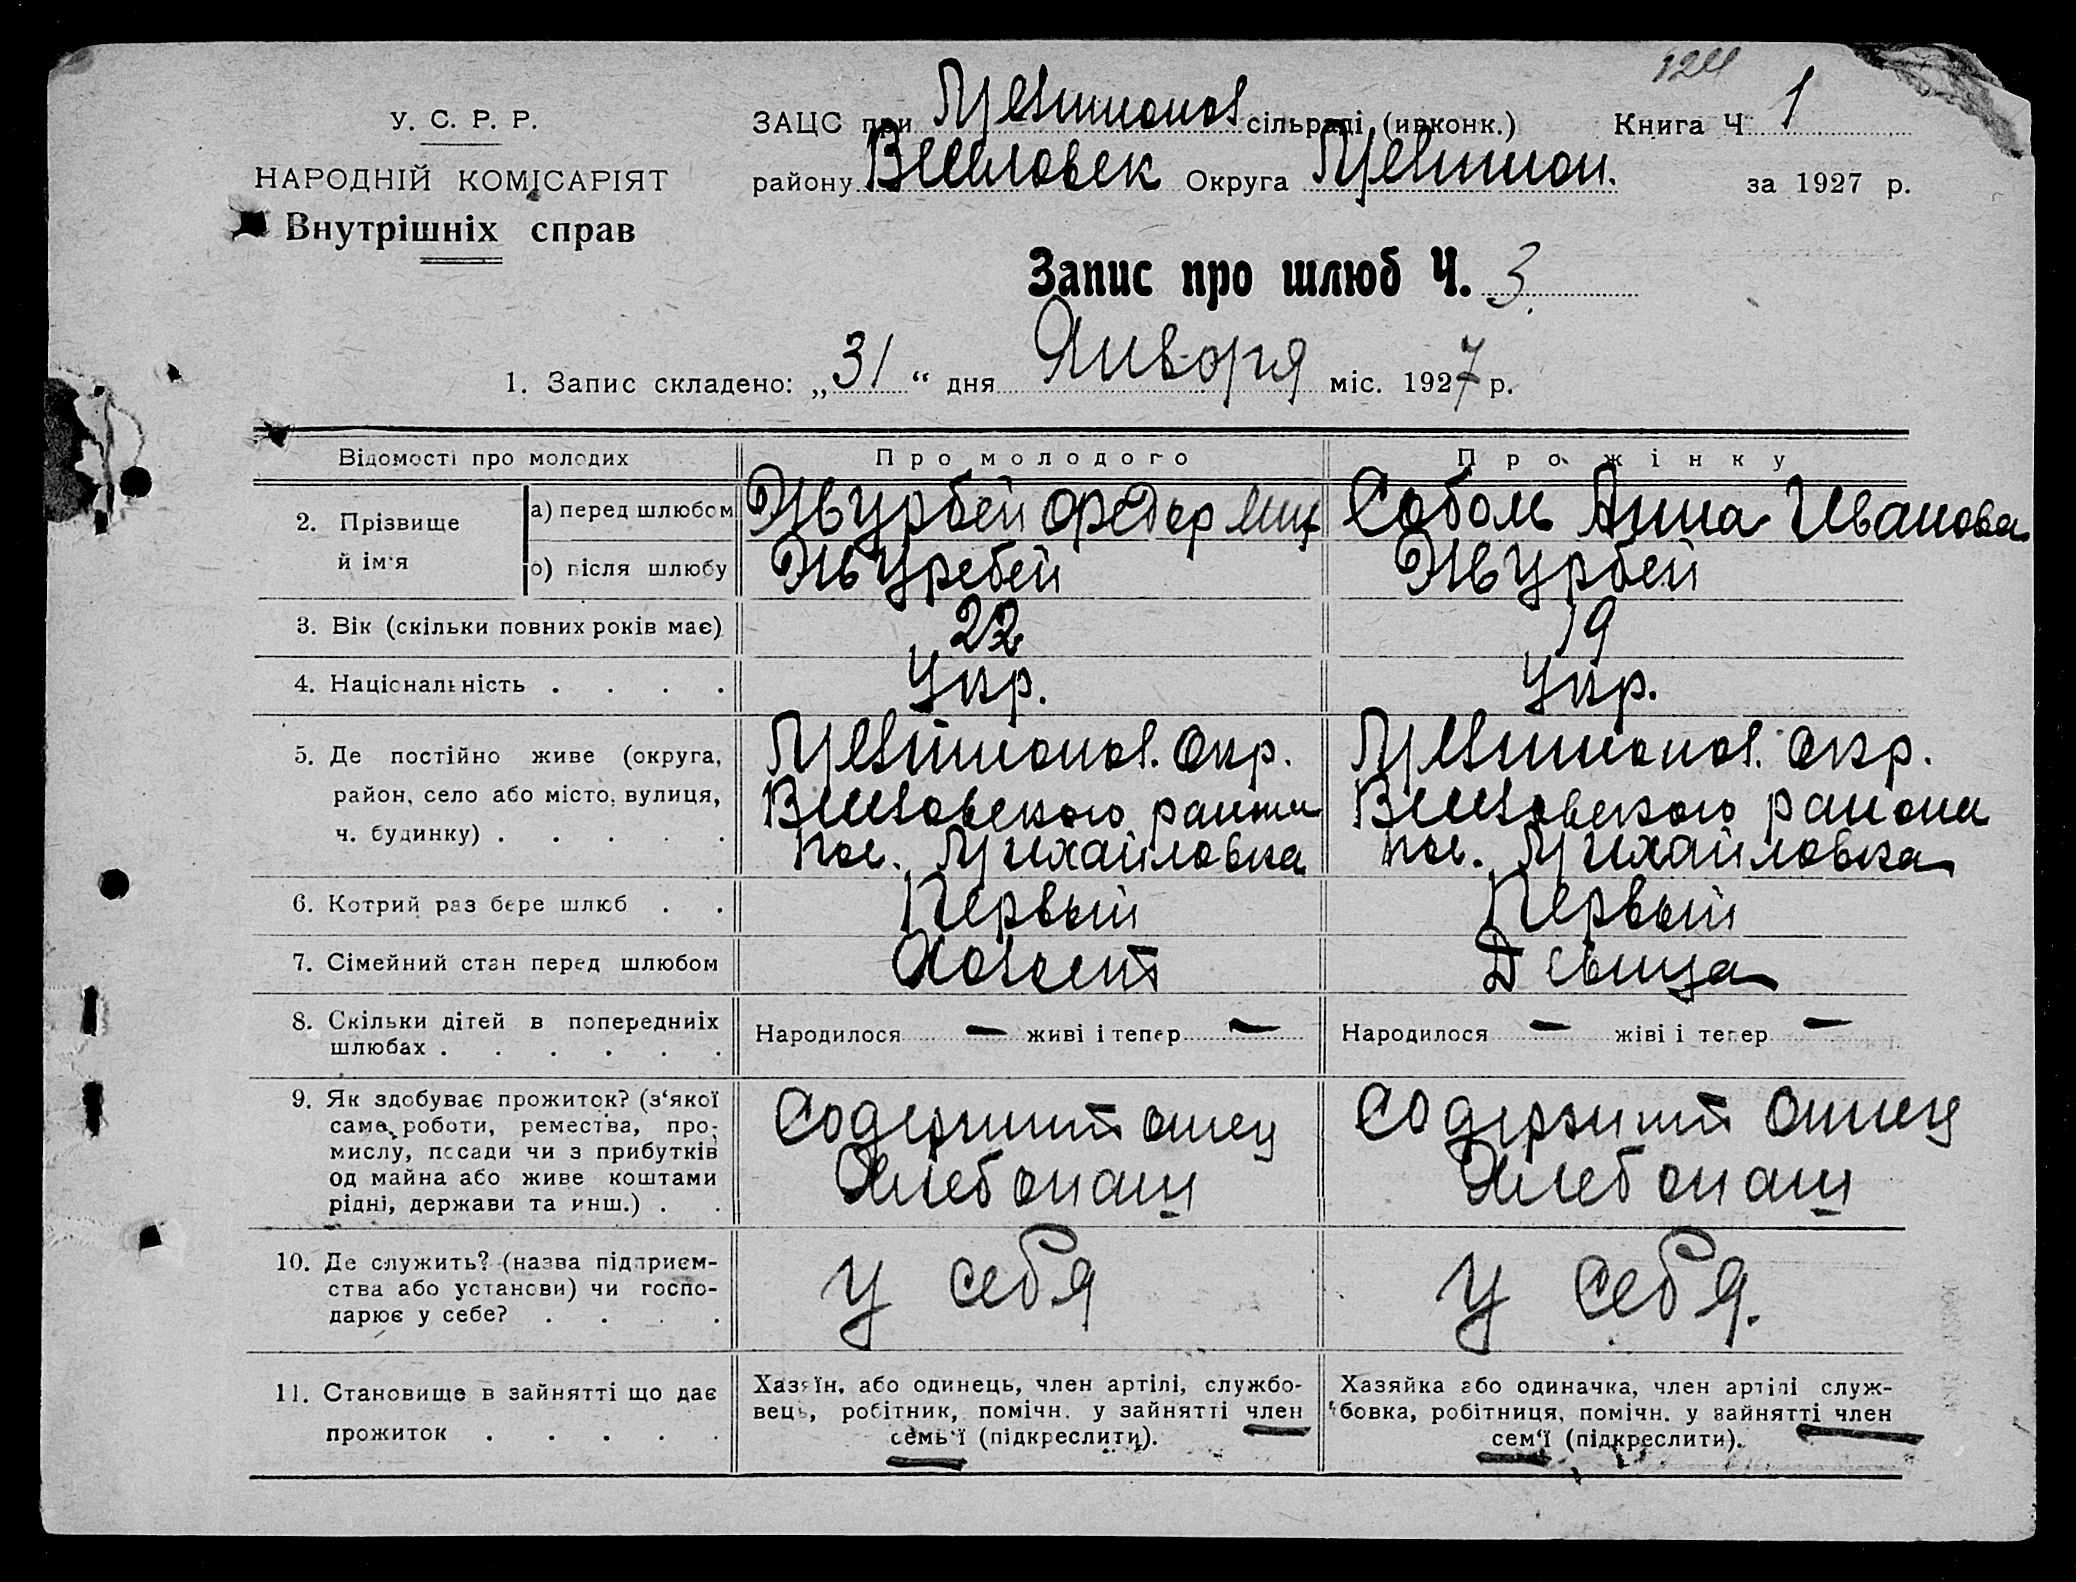 124
У. С. Р. Р.
НАРОДНІЙ КОМІСАРІЯТ
Внутрішніх справ
ЗАЦС при сільраді (ивконк.) Книга Ч 1
району Округа за 1927 р.
Запис про шлюб Ч. 3
1. Запис складено: „31“ дня Января міс. 1927 р.
Відомості про молодих
Про молодого
Про жінку
2. Прізвище й ім'я
а) перед шлюбом
Журбей Федор
Соболь Анна Иванова
о) після шлюбу
Журебей
Журбей
3. Вік (скільки повних років має)
22
19
4. Національність . . . .
Укр.
Укр.
5. Де постійно живе (округа,
район, село або місто, вулиця,
ч. будинку) . . . . .
Окр.
района
пос. Михайловка
Окр.
района
пос. Михайловка
6. Котрий раз бере шлюб . .
Первый
Первый
7. Сімейний стан перед шлюбом
Холост
Девица
8. Скільки дітей в попередниіх
шлюбах . . . . . .
Народилося — живі і тепер —
Народилося — жіві і тепер —
9. Як здобуває прожиток? (з'якої
саме роботи, ремества, про-
мислу, посади чи з прибутків
од майна або живе коштами
рідні, держави та инш.) . .
Содержит отец
Хлебопаш
Содержит отец
Хлебопаш
10. Де служить? (назва підприєм-
ства або установи) чи госпо-
дарює у себе? . . . .
У себя
У себя.
11. Становище в зайнятті що дає
прожиток . . . . .
Хазяїн, або одинець, член артілі, службо-
вець, робітник, помічн. у зайнятті член
семь'ї (підкреслити).
Хазяйка або одиначка, член артілі служ-
бовка, робітниця, помічн. у зайнятті член
сем'ї (підкреслити).